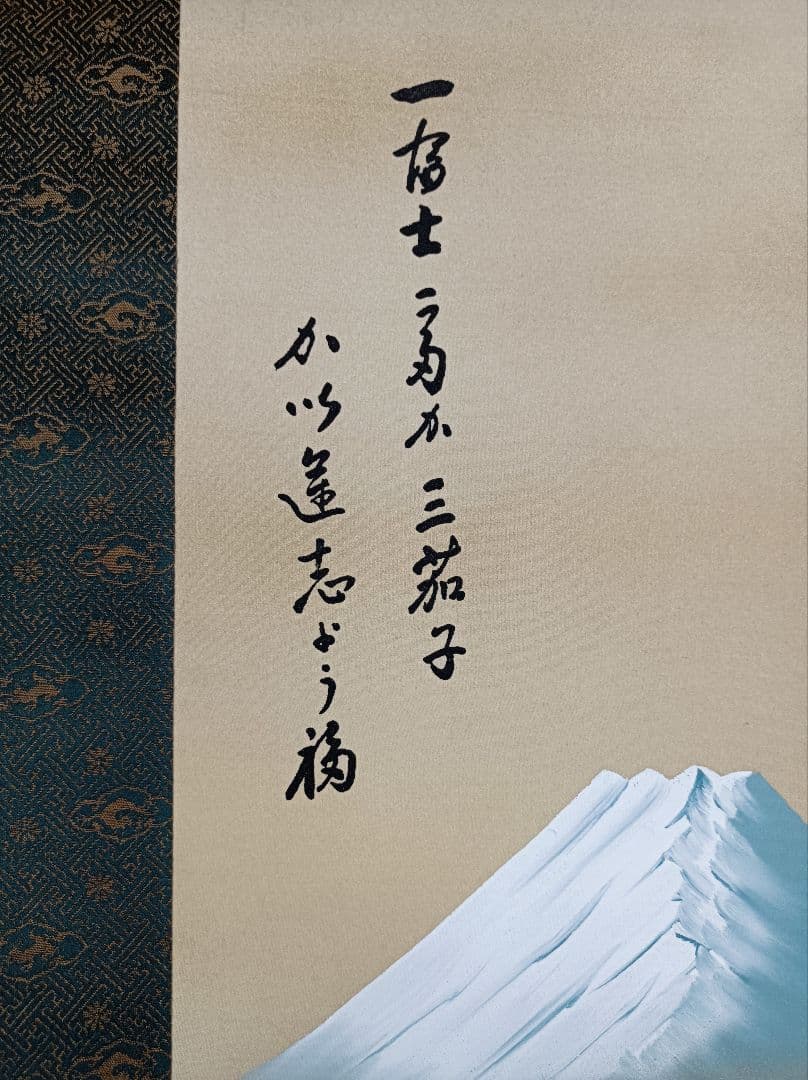 一富士二多か三茄子
か以運志よう福